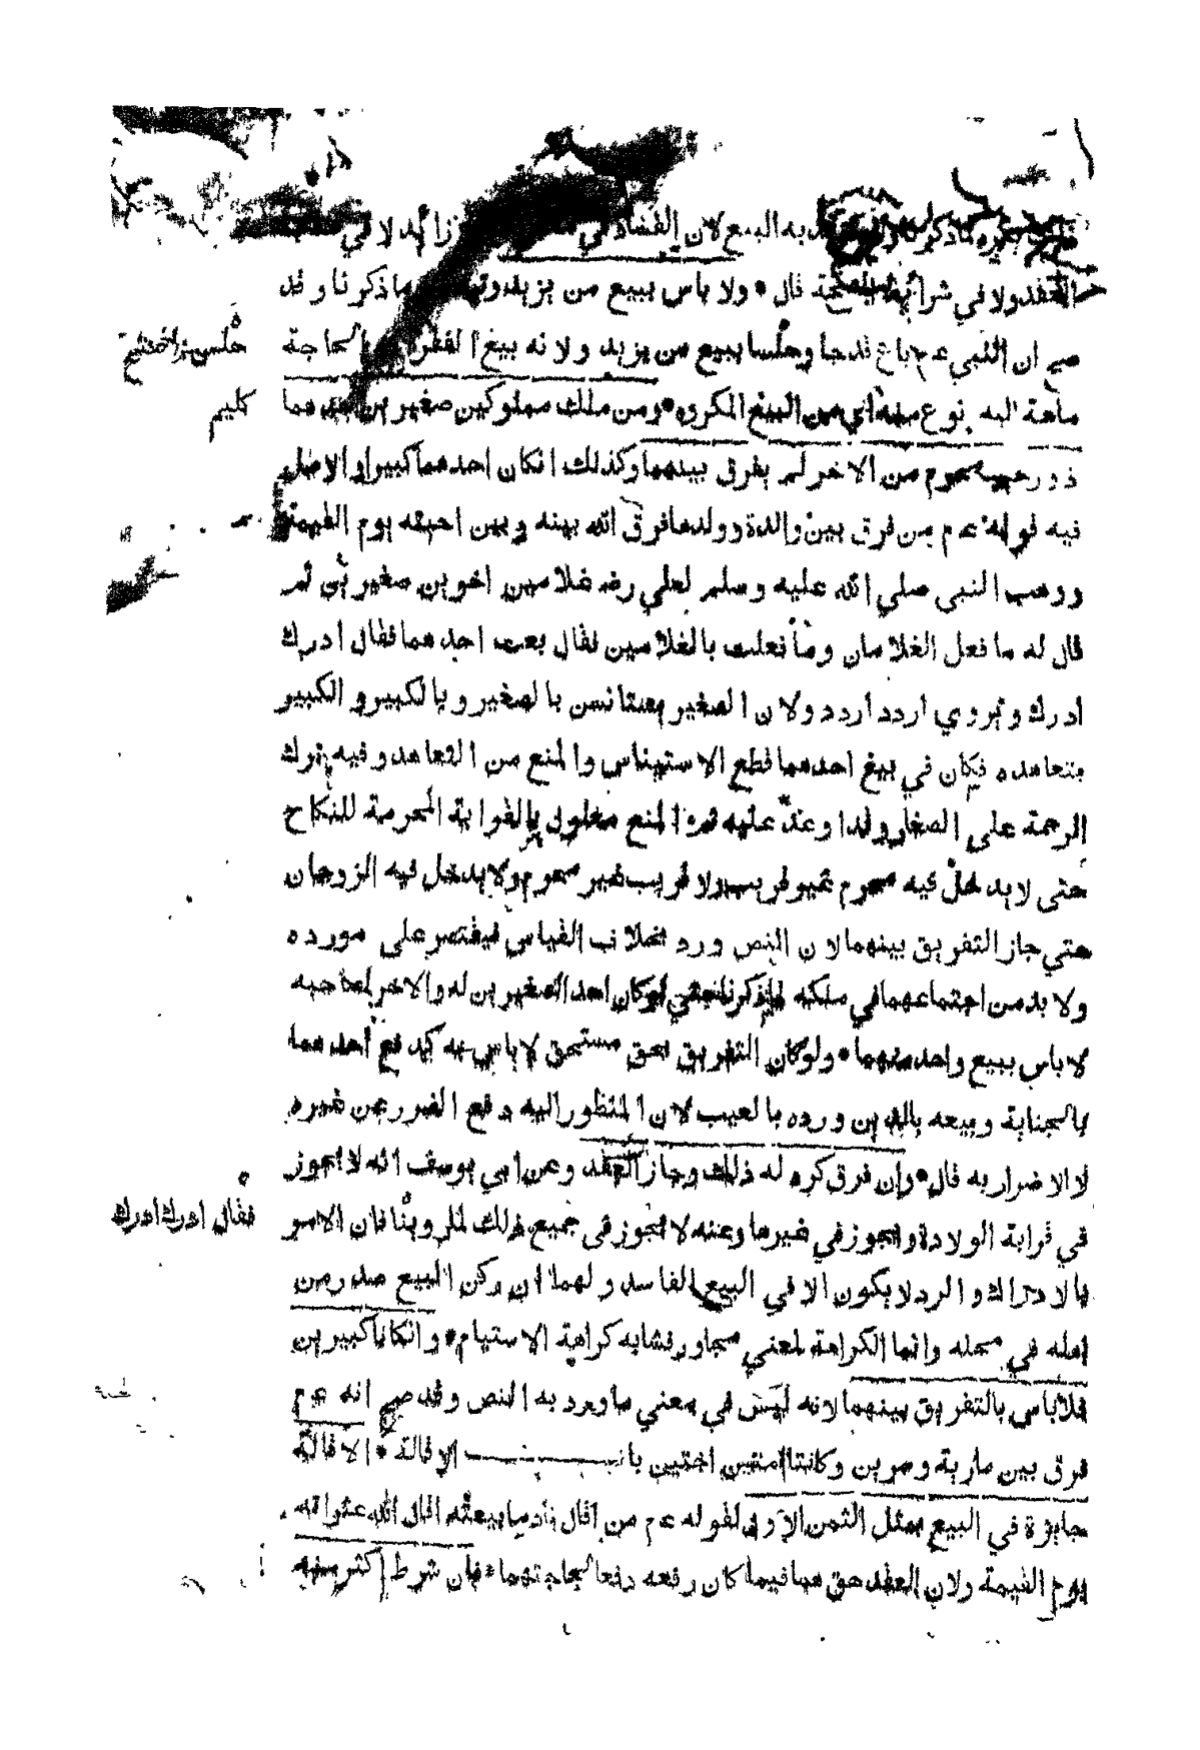 به البيع لان الفساد في زائد لا في
العقد ولا في شرائط الصحة قال ولا باس ببيع من يزيد ما ذكرنا وقد
صح ان النبي عم باع قدحا وحلسا ببيع من يزيد ولانه بيع الفقراء الحاجة
حلس
ماسة اليه نوع منه اي من البيع المكروه ومن ملك مملوكين صغيرين احدهما
كليم
ذو رحم محرم من الاخر لم يفرق بينهما وكذلك ان كان احدهما كبيرا والاصل
فيه قوله عم من فرق بين والدة وولدها فرق الله بينه وبين احبته يوم القيمة
ووهب النبي صلي الله عليه وسلم لعلي رضه غلامين اخوين صغيرين ثم
قال له ما فعل الغلامان وما فعلت بالغلامين فقال بعت احدهما فقال ادرك
ادرك ويروي اردد اردد ولان الصغير يستانس بالصغير وبالكبير والكبير
يتعاهده فكان في بيع احدهما قطع الاستيناس والمنع من التعاهد وفيه ترك
الرحمة على الصغار وقد اوعد عليه ثم المنع معلول بالقرابة المحرمة للنكاح
حتى لا يدخل فيه محرم غير قريب ولا قريب غير محرم ولا يدخل فيه الزوجان
حتي جاز التفريق بينهما لان النص ورد بخلاف القياس فيقتصر على مورده
ولا بد من اجتماعهما في ملكه لما ذكرنا حتي لو كان احد الصغيرين له والاخر لصاحبه
لا باس ببيع واحد منهما ولو كان التفريق بحق مستحق لا باس به كدفع احدهما
بالجناية وبيعه بالدين ورده بالعيب لان المنظور اليه دفع الضرر عن غيره
لا الاضرار به قال وان فرق كره له ذلك وجاز العقد وعن ابي يوسف انه لا يجوز
في قرابة الولادة ويجوز في غيرها وعنه لا يجوز في جميع ذلك لما روينا فان الامر
فقال ادرك ادرك
بالادراك والرد لا يكون الا في البيع الفاسد ولهما ان ركن البيع صدر من
اهله في محله وانما الكراهة لمعني مجاور فشابه كراهة الاستيام وان كانا كبيرين
فلا باس بالتفريق بينهما لانه ليس في معني ما ورد به النص وقد صح انه عم
فرق بين مارية وسيرين وكانتا امتين اختين باب الاقالة الاقالة
جايزة في البيع بمثل الثمن الاول لقوله عم من اقال نادما بيعته اقال الله عثراته
يوم القيمة ولان العقد حقهما فيما كان رفعه دفعا لحاجتهما فان شرط اكثر منه